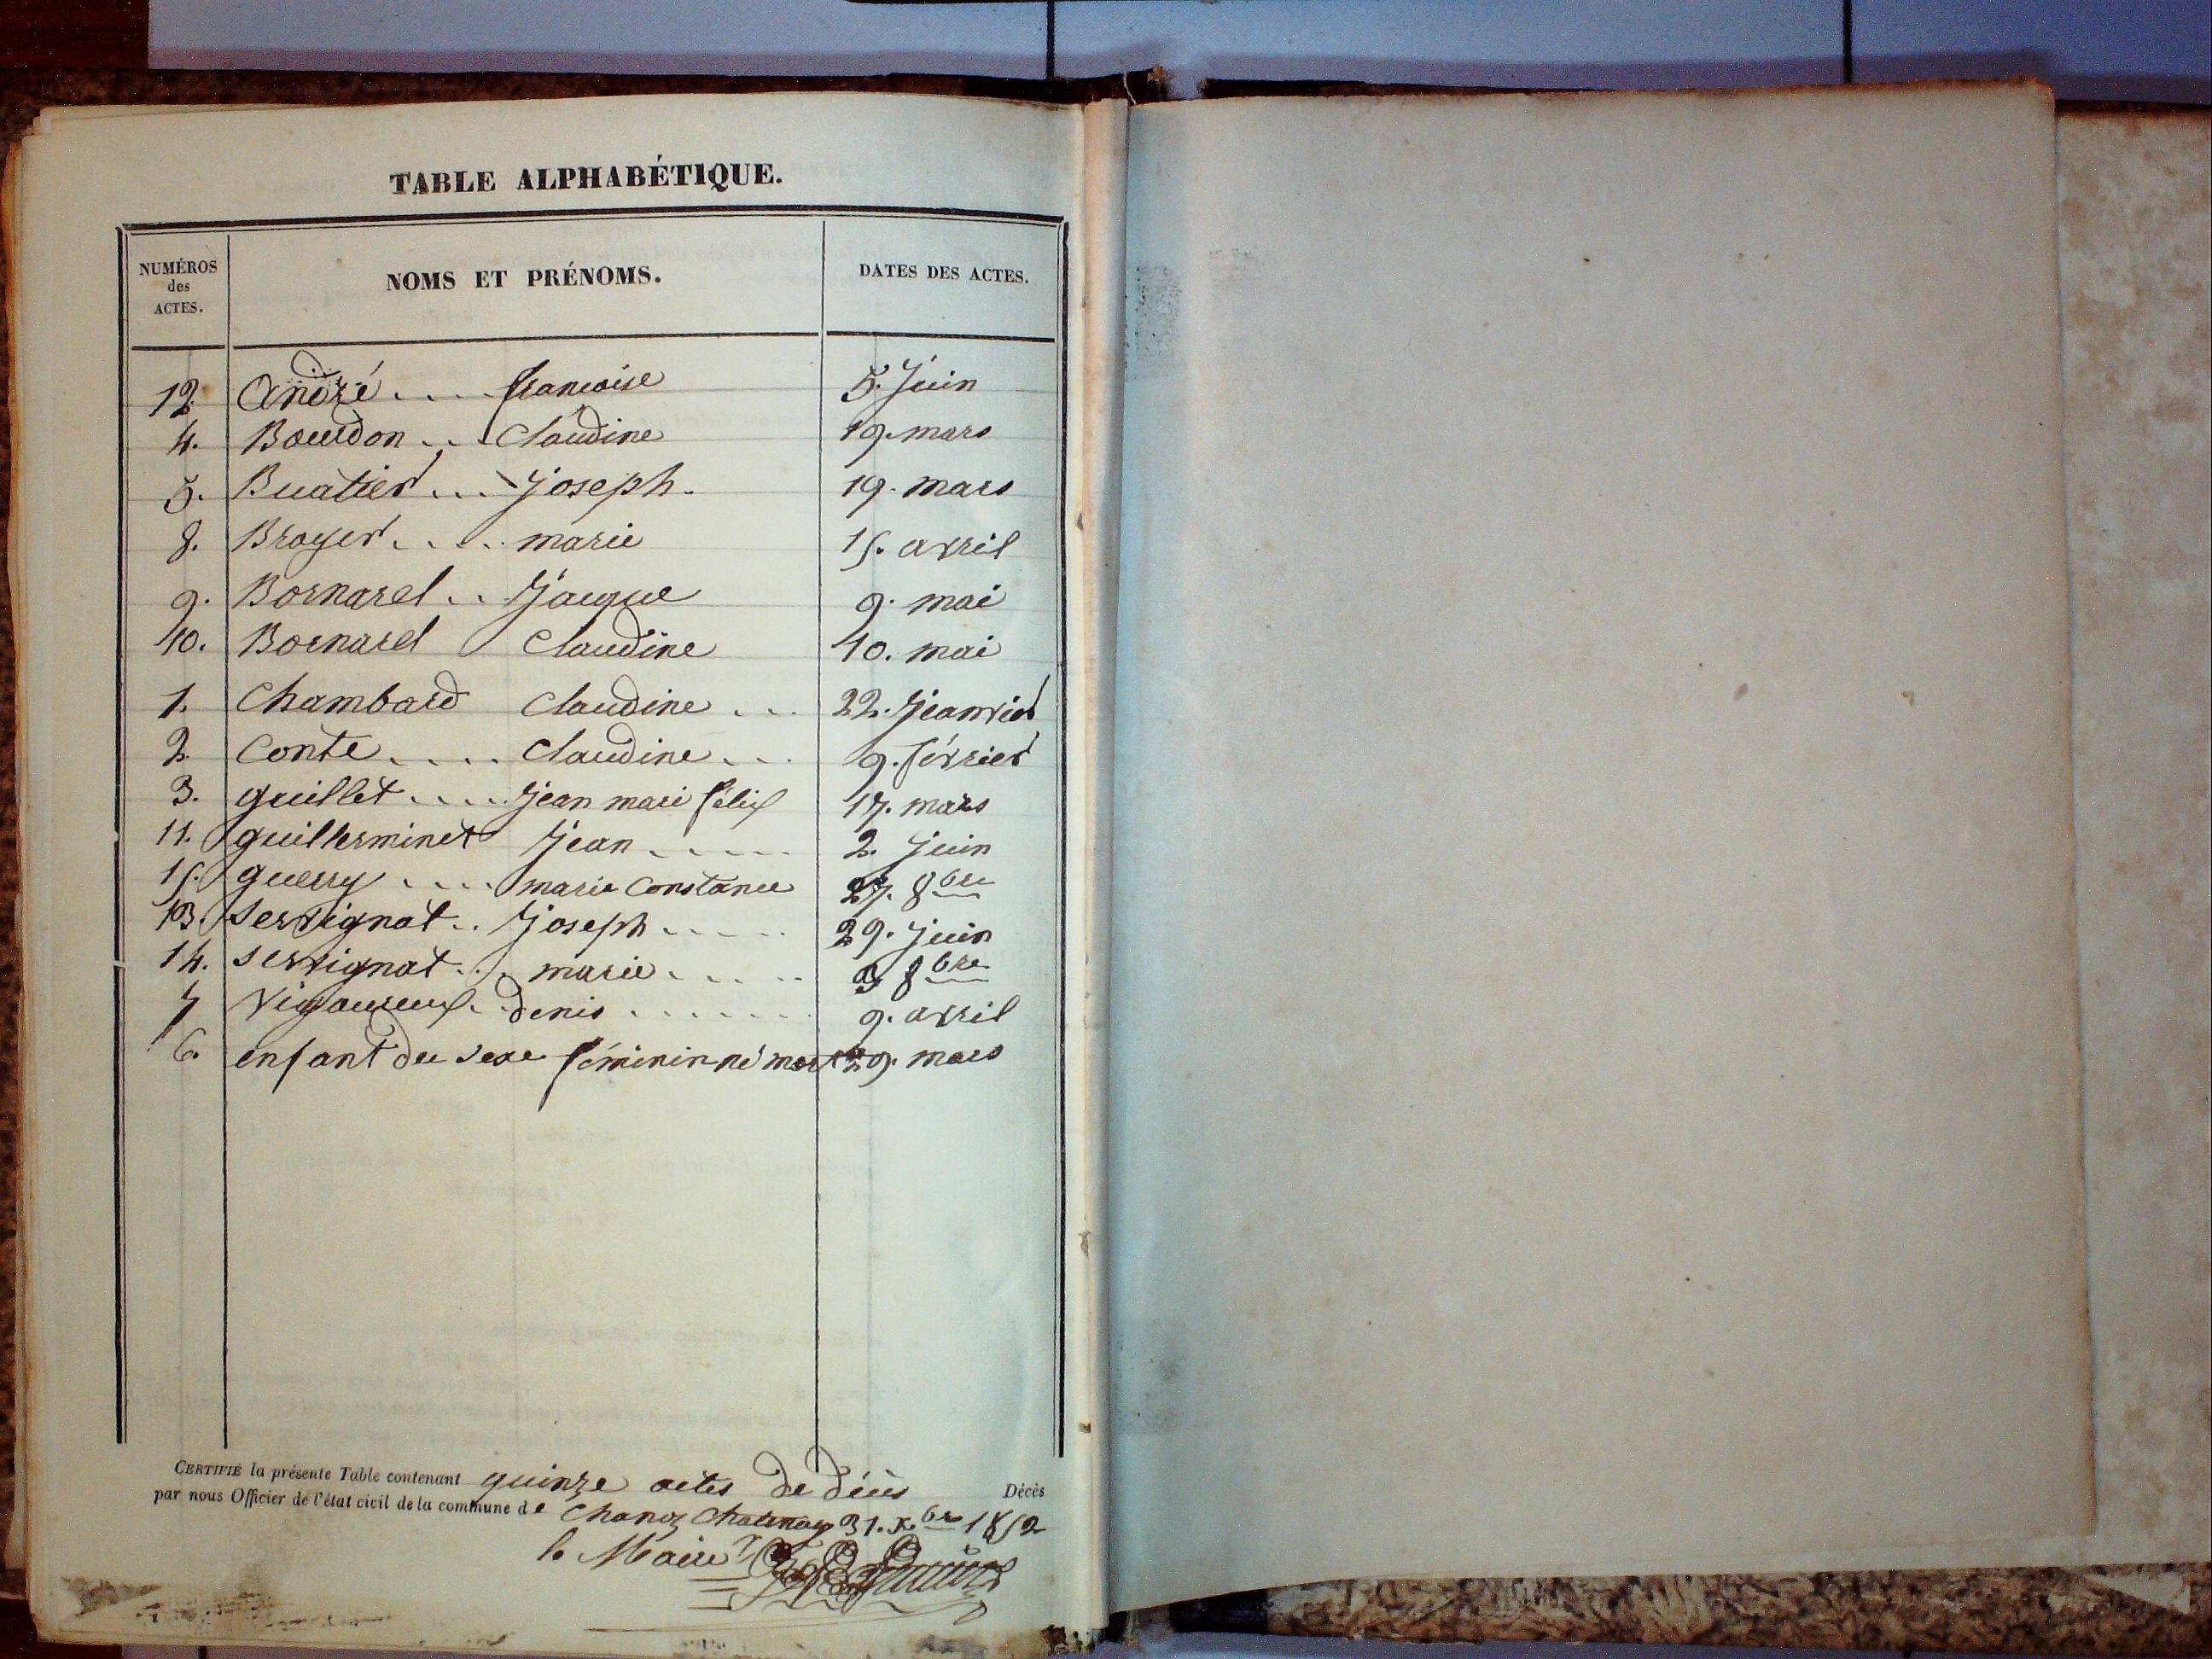 TABLE ALPHABÉTIQUE.
NUMÉROS des ACTES. NOMS ET PRÉNOMS. DATES DES ACTES.
12. André .... francoise 5. Juin
4. Bourdon ... Claudine 19. mars
5. Buatier ... Joseph. 19. mars
8. Broyer .... marie 15. avril
9. Bornarel .. Jacque 9. mai
10. Bornarel Claudine 10. mai
1. Chambard Claudine ... 22. Jeanvier
2. Conte .... Claudine ... 9. février
3. guillet .... Jean mari félix 17. mars
11. guillerminet Jean ..... 2. Juin
15. guerry .... marie Constance 27. 8bre
13. servignat .. Joseph ..... 29. juin
14. servignat ... marie ..... 3 8bre
7 Vigoureux .. denis ....... 9. avril
6. enfant du sexe féminin né mort 29. mars
CERTIFIÉ la présente Table contenant quinze actes de décès Décès
par nous Officier de l'état civil de la commune de Chanoz Chatenay 31. Xbre 1852
le Maire